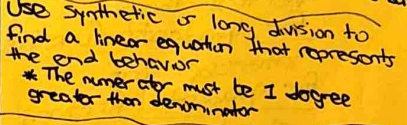 Use synthetic or long division to
find a linear equation that represents
the end behavior
* The numerator must be 1 degree
greater than denominator